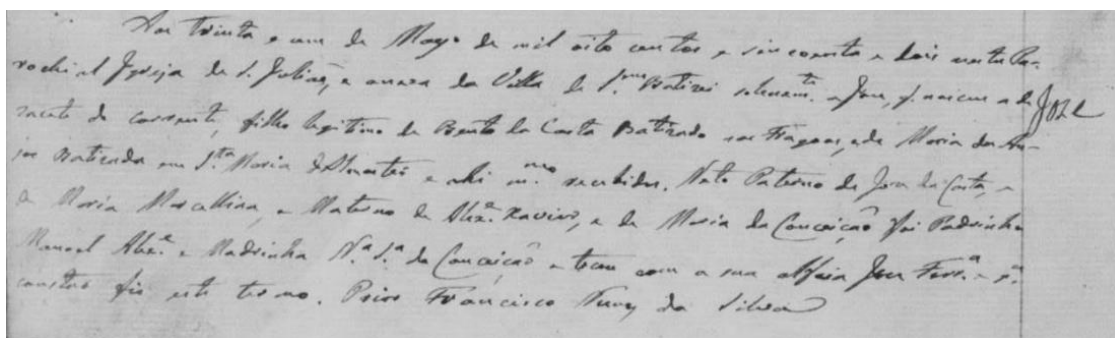 Aos trinta e um de Mayo de mil oito centos e sincoenta e dois nesta Pa-
rochial Igreja de S. Julião, e annexa da Villa de Batizei solenemte. a Jose, q. nasceu a de José
zacete do corrente, filho legitimo de Bento da Costa Batizado nas Fragoas, e de Maria dos An-
jos Batizada em Sta. Maria d'Almoster e ahi mmo. recebidos. Neto Paterno de Jose da Costa, e
de Maria Marcellina, e Materno de Alexe. Xavier, e de Maria da Conceição Foi Padrinho
Manoel Alexe. e Madrinha Na. Sa. da Conceição e tocou com a sua Jose Ferra. e pa.
constar fiz este termo. Prior Francisco Nunes da Silva